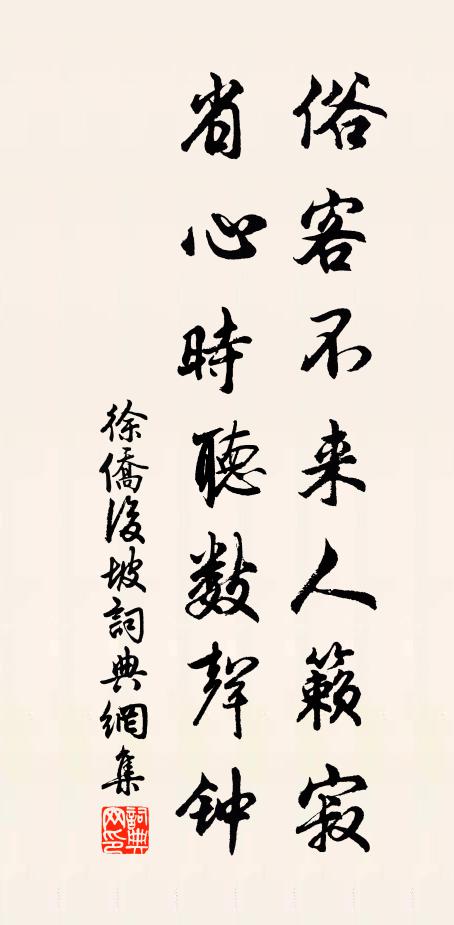 俗客不来人籁寂
省心時聽数聲钟
徐僑後坡詞典網集
詞典网印